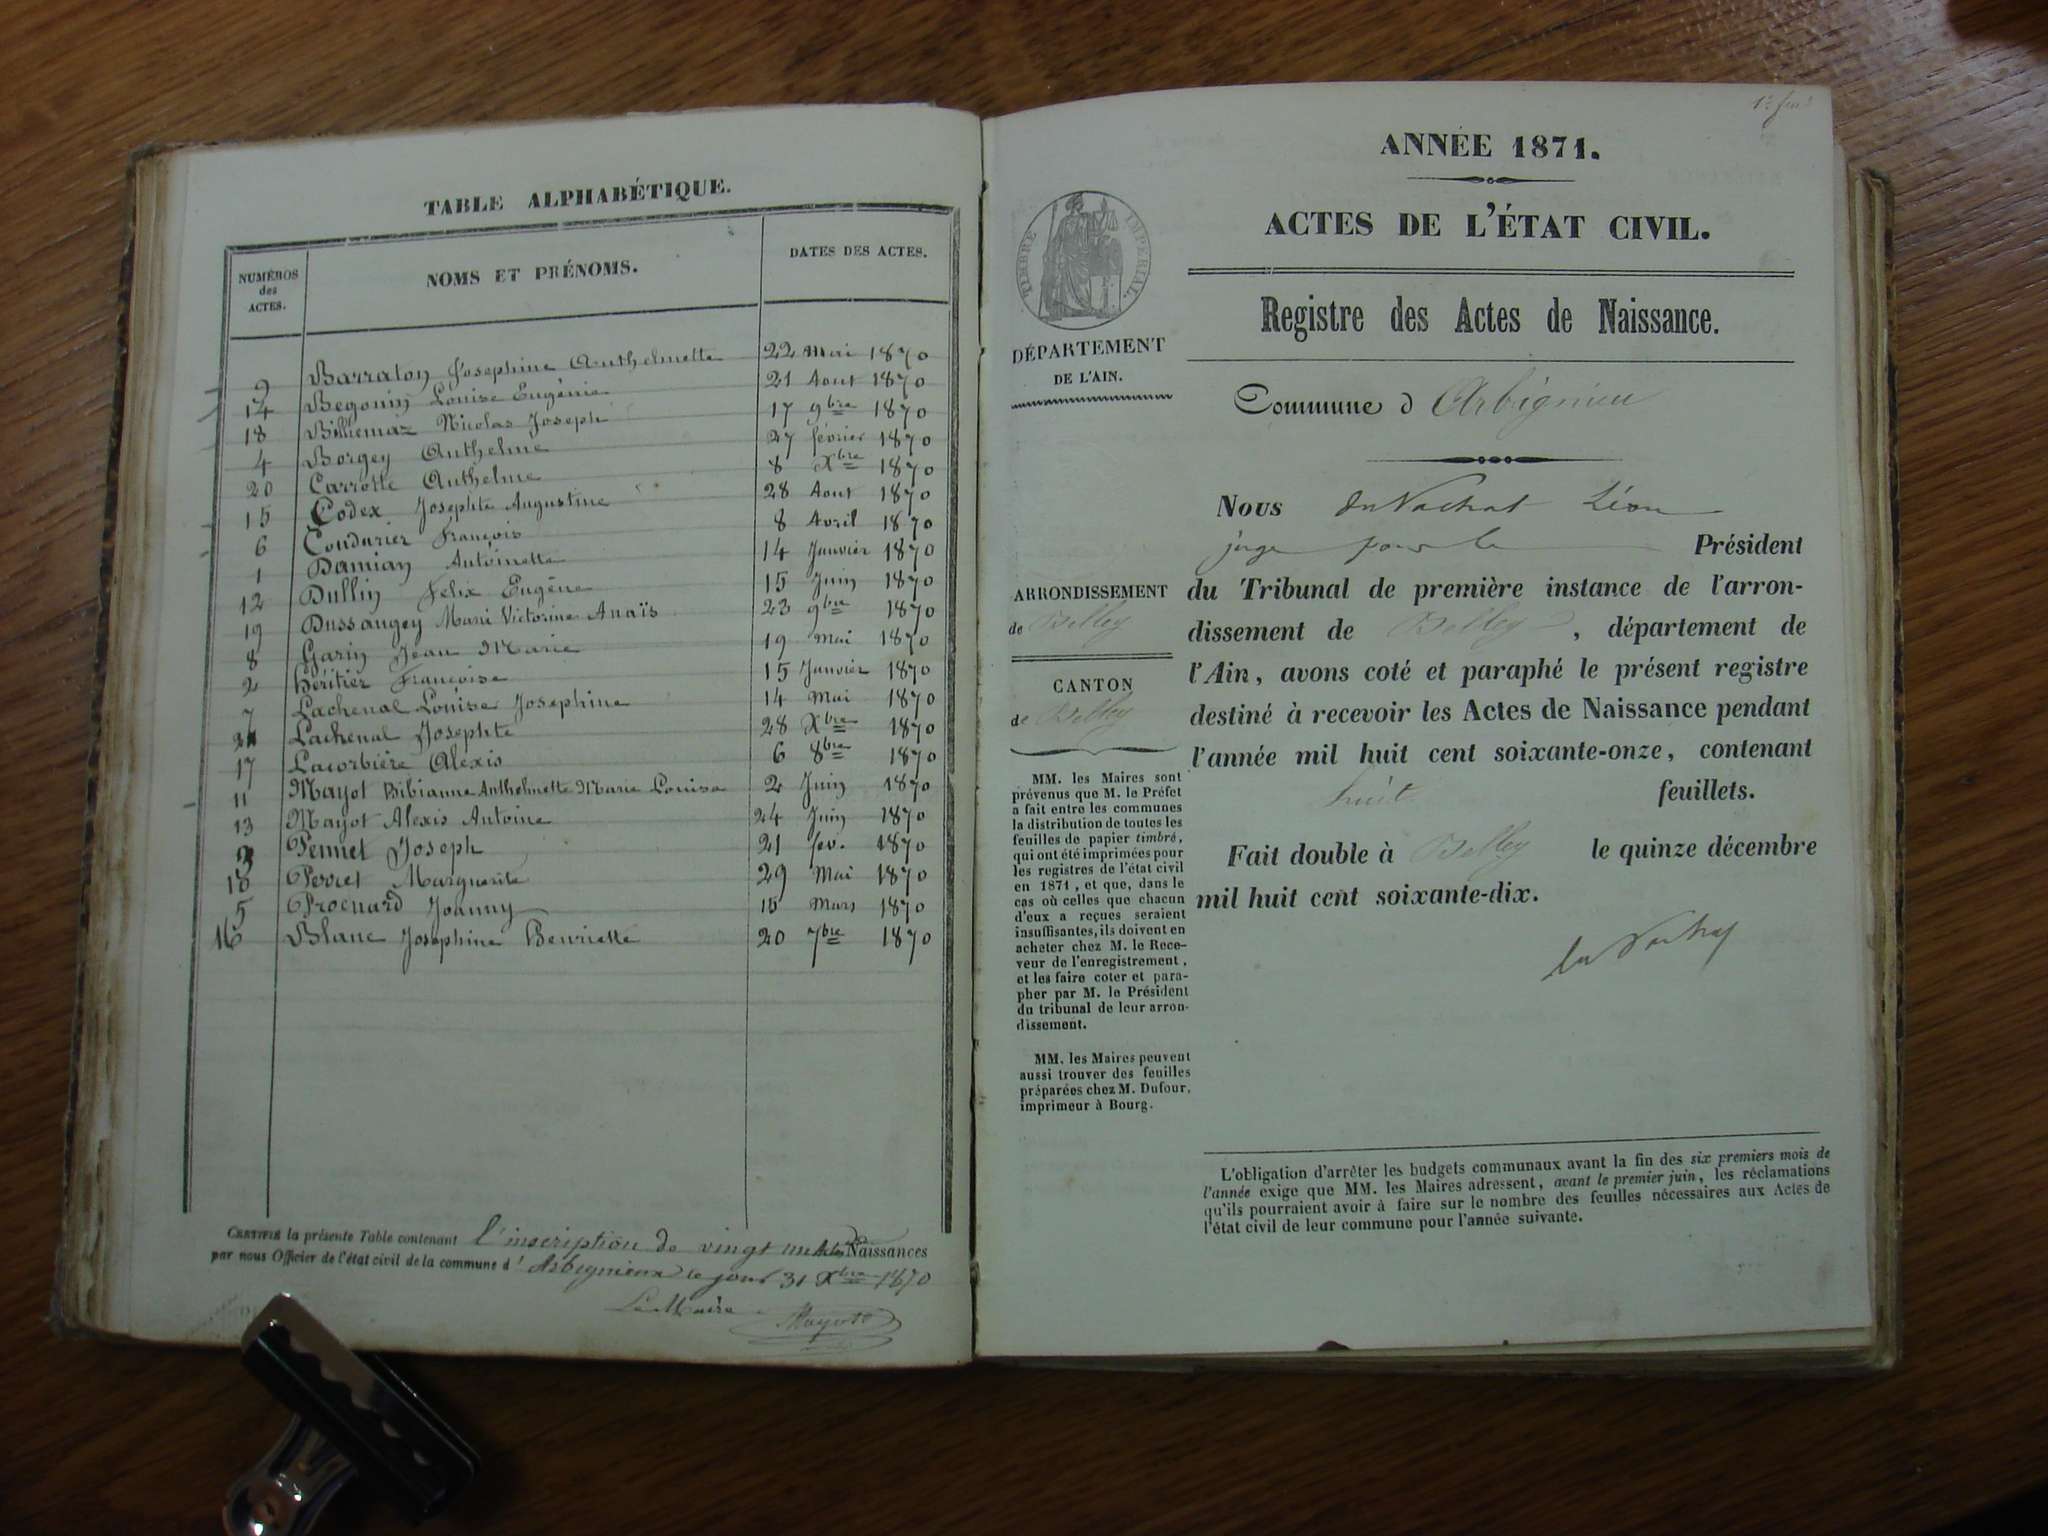 TABLE ALPHABÉTIQUE.
NUMÉROS des ACTES. NOMS ET PRÉNOMS. DATES DES ACTES.
9 Barraton Josephine Anthelmette 22 Mai 1870
14 Begouin Louise Eugénie 21 Aout 1870
18 Billiemaz Nicolas Joseph 17 9bre 1870
4 Borgey Anthelme 27 février 1870
20 Carrotte Anthelme 8 Xbre 1870
15 Codex Josephte Augustine 28 Aout 1870
6 Condurier François 8 Avril 1870
1 Damian Antoinette 14 Janvier 1870
12 Dullin Felix Eugène 15 Juin 1870
19 Dussaugey Marie Victorine Anaïs 23 9bre 1870
8 Garin Jean Marie 19 Mai 1870
2 héritier Françoise 15 Janvier 1870
7 Lachenal Louise Josephine 14 Mai 1870
21 Lachenal Josephte 28 Xbre 1870
17 Lacorbière Alexis 6 8bre 1870
11 Mayot Bibianne Anthelmette Marie Louise 2 Juin 1870
13 Mayot Alexis Antoine 24 Juin 1870
3 Joseph 21 fev. 1870
10 Perret Marguerite 29 Mai 1870
5 Joanny Mars 1870
16 Blanc Josephine Henriette 20 7bre 1870
CERTIFIÉ la présente Table contenant l'inscription de vingt un Actes Naissances
par nous Officier de l'état civil de la commune d' Arbignieux le jour 31 Xbre 1870
Le Maire
Mayot
ANNÉE 1871.
ACTES DE L'ÉTAT CIVIL.
TIMBRE IMPÉRIAL.
Registre des Actes de Naissance.
DÉPARTEMENT
DE L'AIN.
Commune d Arbignieu
Nous du Vachat Léon
juge pour le Président
ARRONDISSEMENT
de Belley
CANTON
de Belley
du Tribunal de première instance de l'arron-
dissement de Belley, département de
l'Ain, avons coté et paraphé le présent registre
destiné à recevoir les Actes de Naissance pendant
l'année mil huit cent soixante-onze, contenant
huit feuillets.
Fait double à Belley le quinze décembre
mil huit cent soixante-dix.
du Vachat
MM. les Maires sont
prévenus que M. le Préfet
a fait entre les communes
la distribution de toutes les
feuilles de papier timbré,
qui ont été imprimées pour
les registres de l'état civil
en 1871, et que, dans le
cas où celles que chacun
d'eux a reçues seraient
insuffisantes, ils doivent en
acheter chez M. le Rece-
veur de l'enregistrement,
et les faire coter et para-
pher par M. le Président
du tribunal de leur arron-
dissement.
MM. les Maires peuvent
aussi trouver des feuilles
préparées chez M. Dufour,
imprimeur à Bourg.
L'obligation d'arrêter les budgets communaux avant la fin des six premiers mois de
l'année exige que MM. les Maires adressent, avant le premier juin, les réclamations
qu'ils pourraient avoir à faire sur le nombre des feuilles nécessaires aux Actes de
l'état civil de leur commune pour l'année suivante.